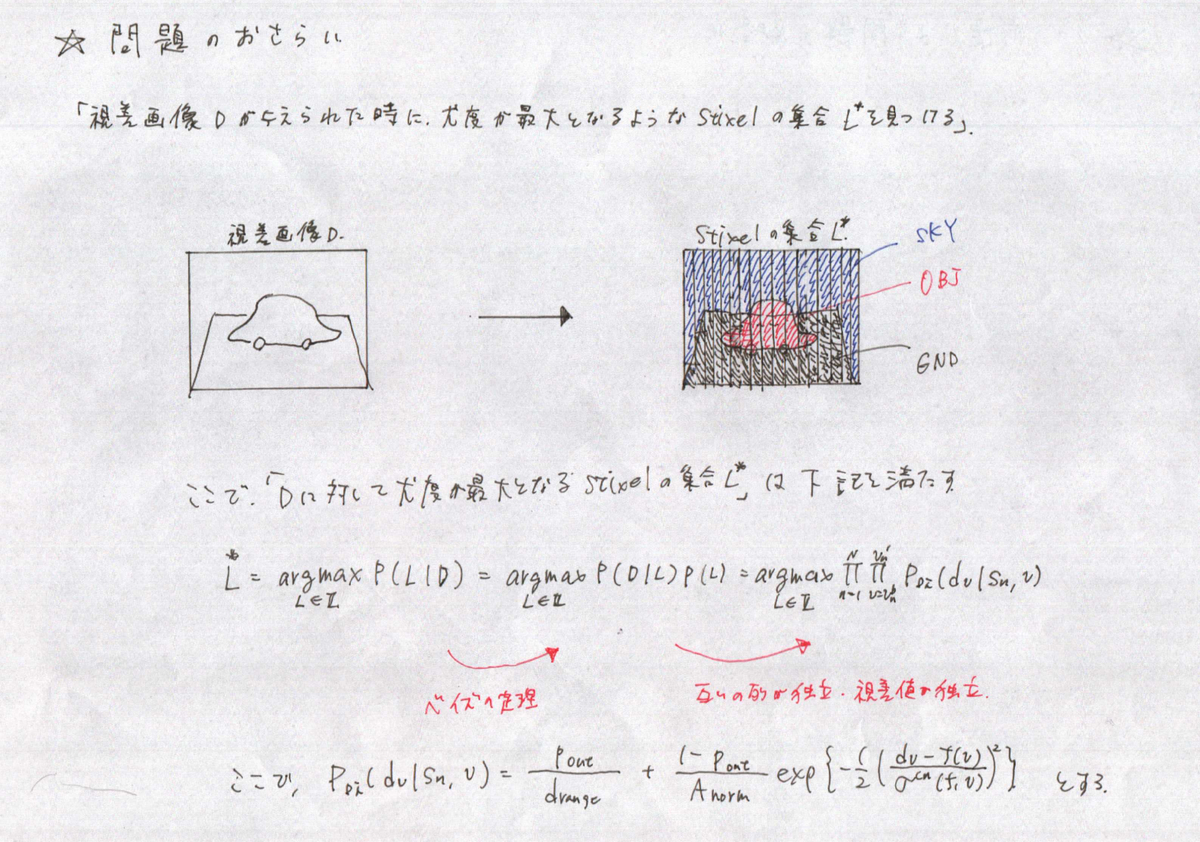 ☆ 問題のおさらい
「視差画像Dが与えられた時に、尤度が最大となるようなStixelの集合L*を見つける」
視差画像D.
Stixelの集合L*.
SKY
OBJ
GND
ここで、「Dに対して尤度が最大となるStixelの集合L*」は下記を満たす
L* = argmax_{L∈𝕃} P(L|D) = argmax_{L∈𝕃} P(D|L)P(L) = argmax_{L∈𝕃} ∏_{n=1}^{N} ∏ P_{Di}(dv|Sn, v)
ベイズの定理
互いの列が独立・視差値が独立.
ここで, P_{Di}(dv|Sn, v) = Pout/drange + (1-Pout)/Anorm exp{-1/2((dv-f(v))/σ^{cn}(f,v))^2} とする.